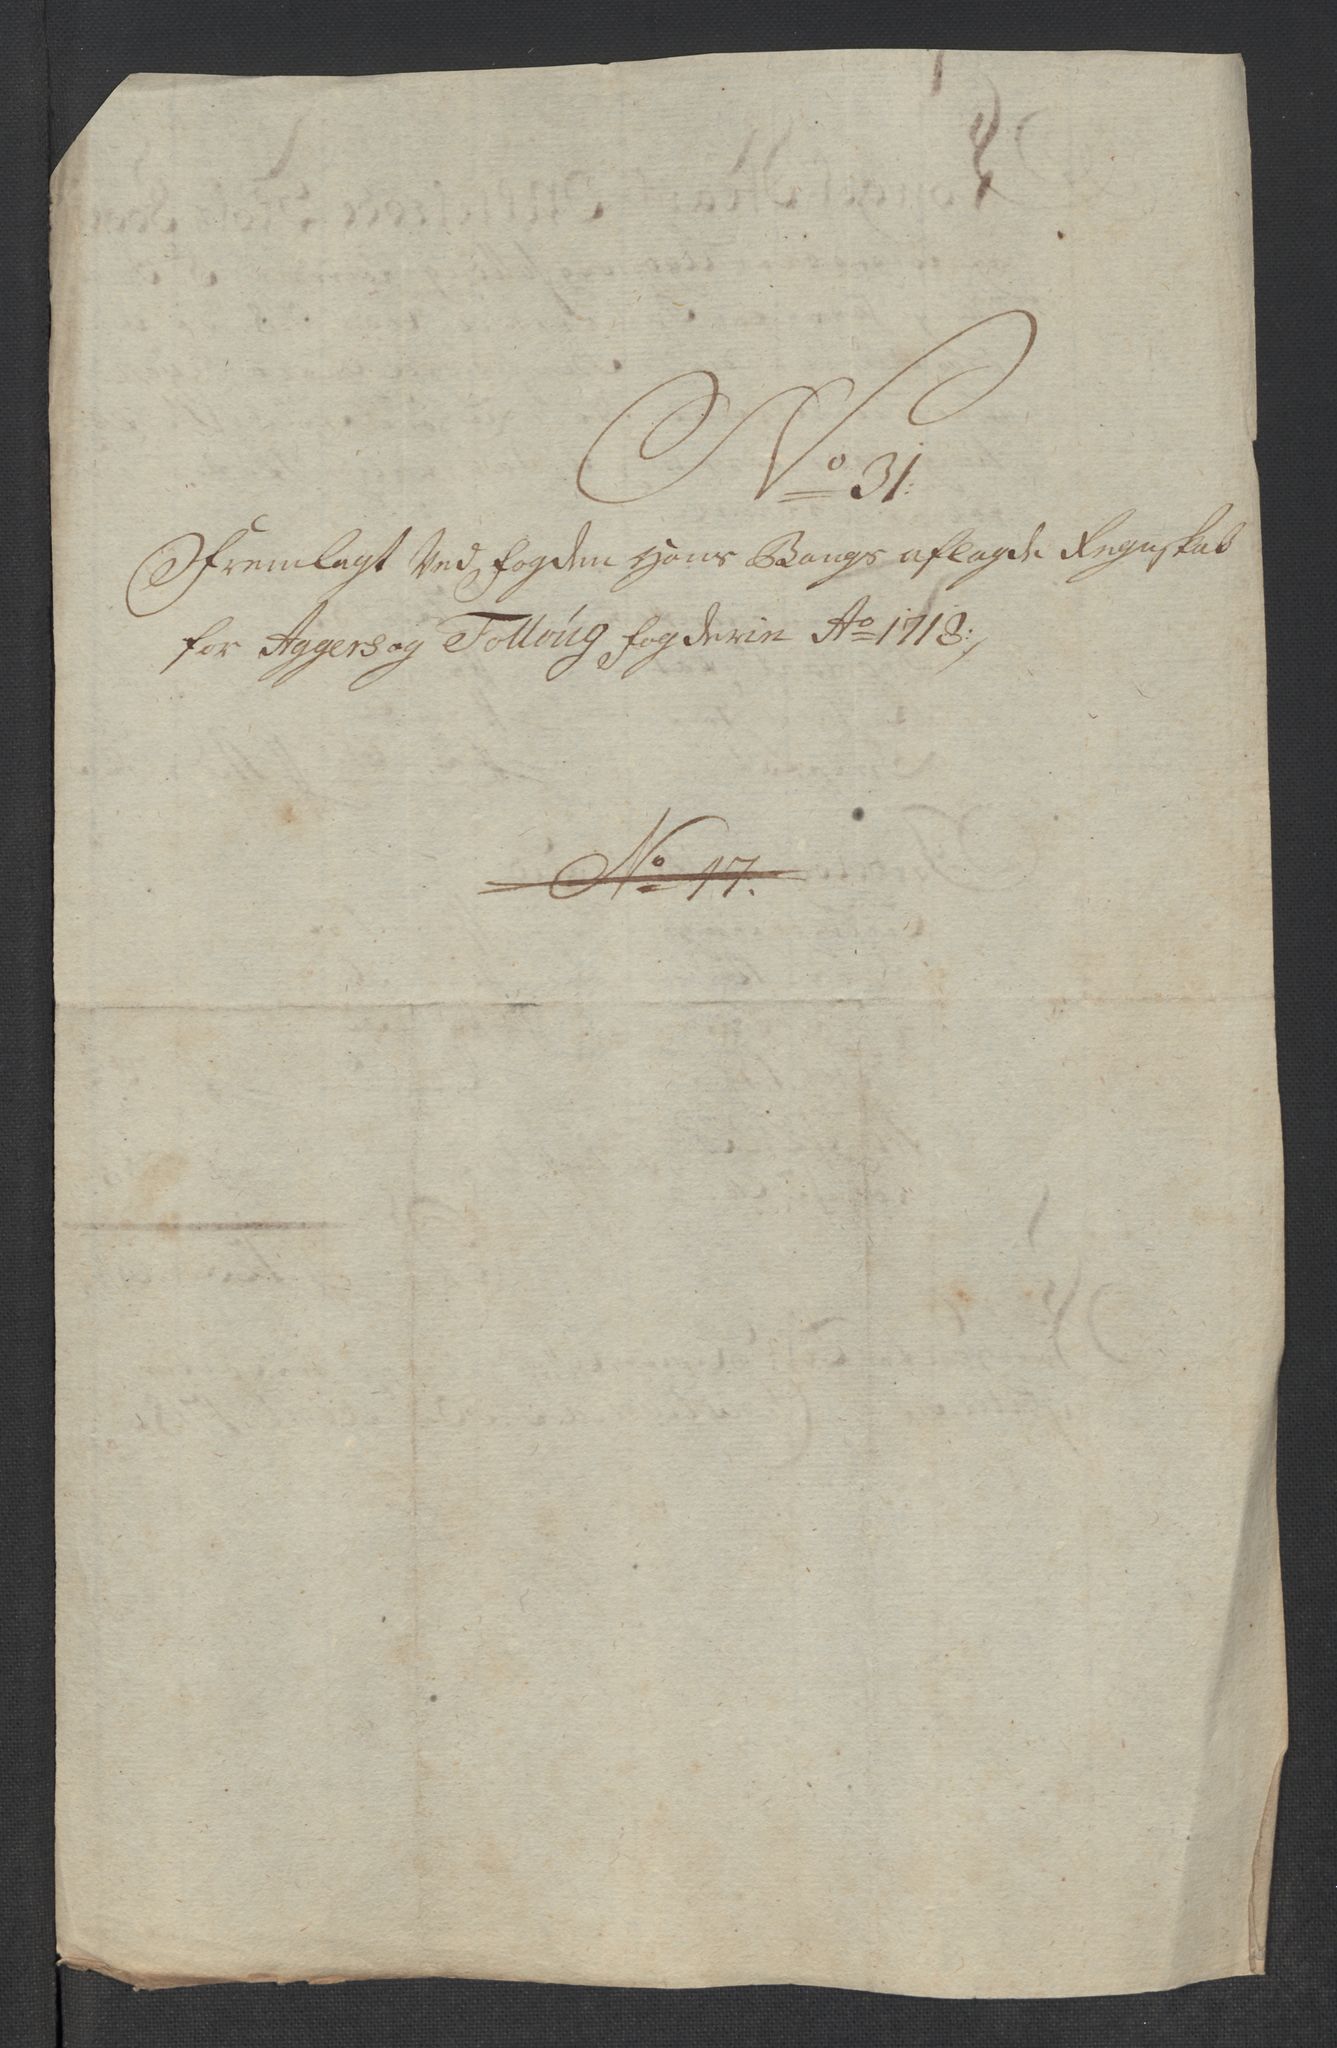 No 31:
Fremlagt Ved fogden Hans Bangs aflagde Regnskab
for Aggers og Folloug fogderie Ao 1718:
No 17.